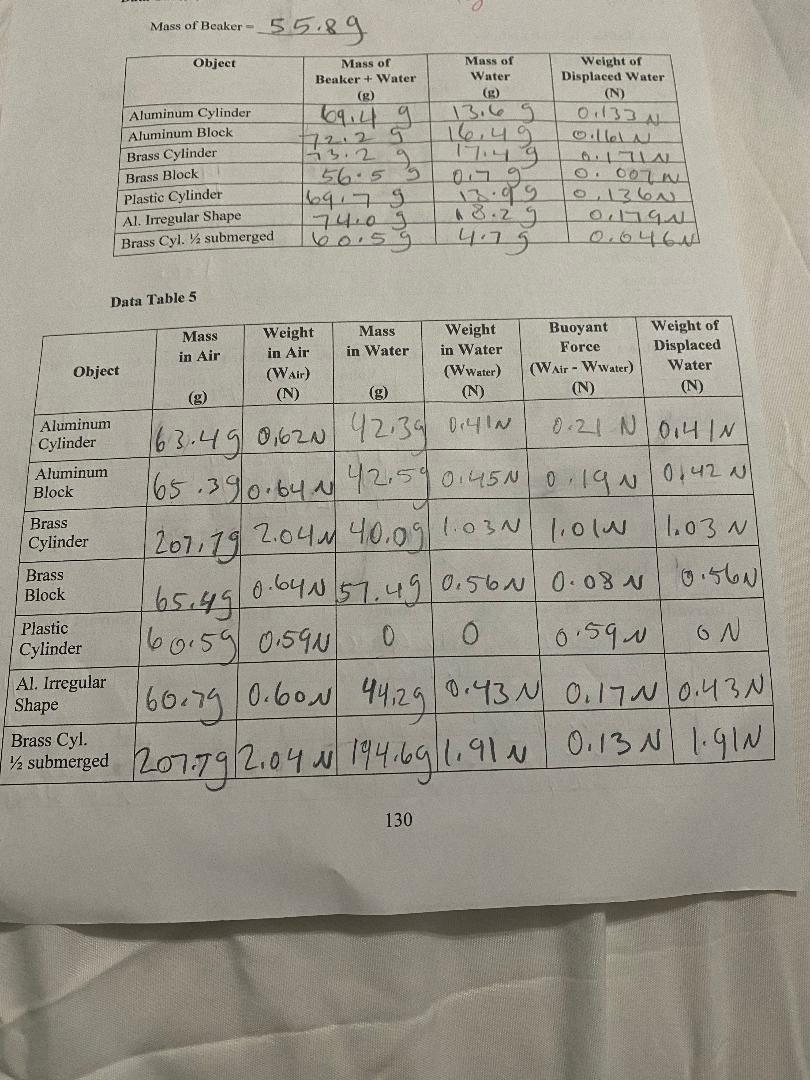 Mass of Beaker = 55.8g
Object Mass of Beaker + Water (g) Mass of Water (g) Weight of Displaced Water (N)
Aluminum Cylinder 69.4 g 13.6 g 0.133 N
Aluminum Block 72.2 g 16.4g 0.161N
Brass Cylinder 73.2 g 17.4g 0.171N
Brass Block 56.5 g 0.7 g 0.007N
Plastic Cylinder 69.7 g 13.9g 0.136N
Al. Irregular Shape 74.0 g 18.2g 0.179N
Brass Cyl. ½ submerged 60.5g 4.7 g 0.046N
Data Table 5
Object Mass in Air (g) Weight in Air (WAir) (N) Mass in Water (g) Weight in Water (WWater) (N) Buoyant Force (WAir - WWater) (N) Weight of Displaced Water (N)
Aluminum Cylinder 63.4g 0.62N 42.3g 0.41N 0.21 N 0.41N
Aluminum Block 65.3g 0.64N 42.5g 0.45N 0.19N 0.42 N
Brass Cylinder 207.7g 2.04N 40.0g 1.03N 1.01N 1.03 N
Brass Block 65.4g 0.64N 57.4g 0.56N 0.08 N 0.56N
Plastic Cylinder 60.5g 0.59N 0 0 0.59N 0 N
Al. Irregular Shape 60.7g 0.60N 44.2g 0.43N 0.17N 0.43N
Brass Cyl. ½ submerged 207.7g 2.04 N 194.6g 1.91N 0.13 N 1.91N
130